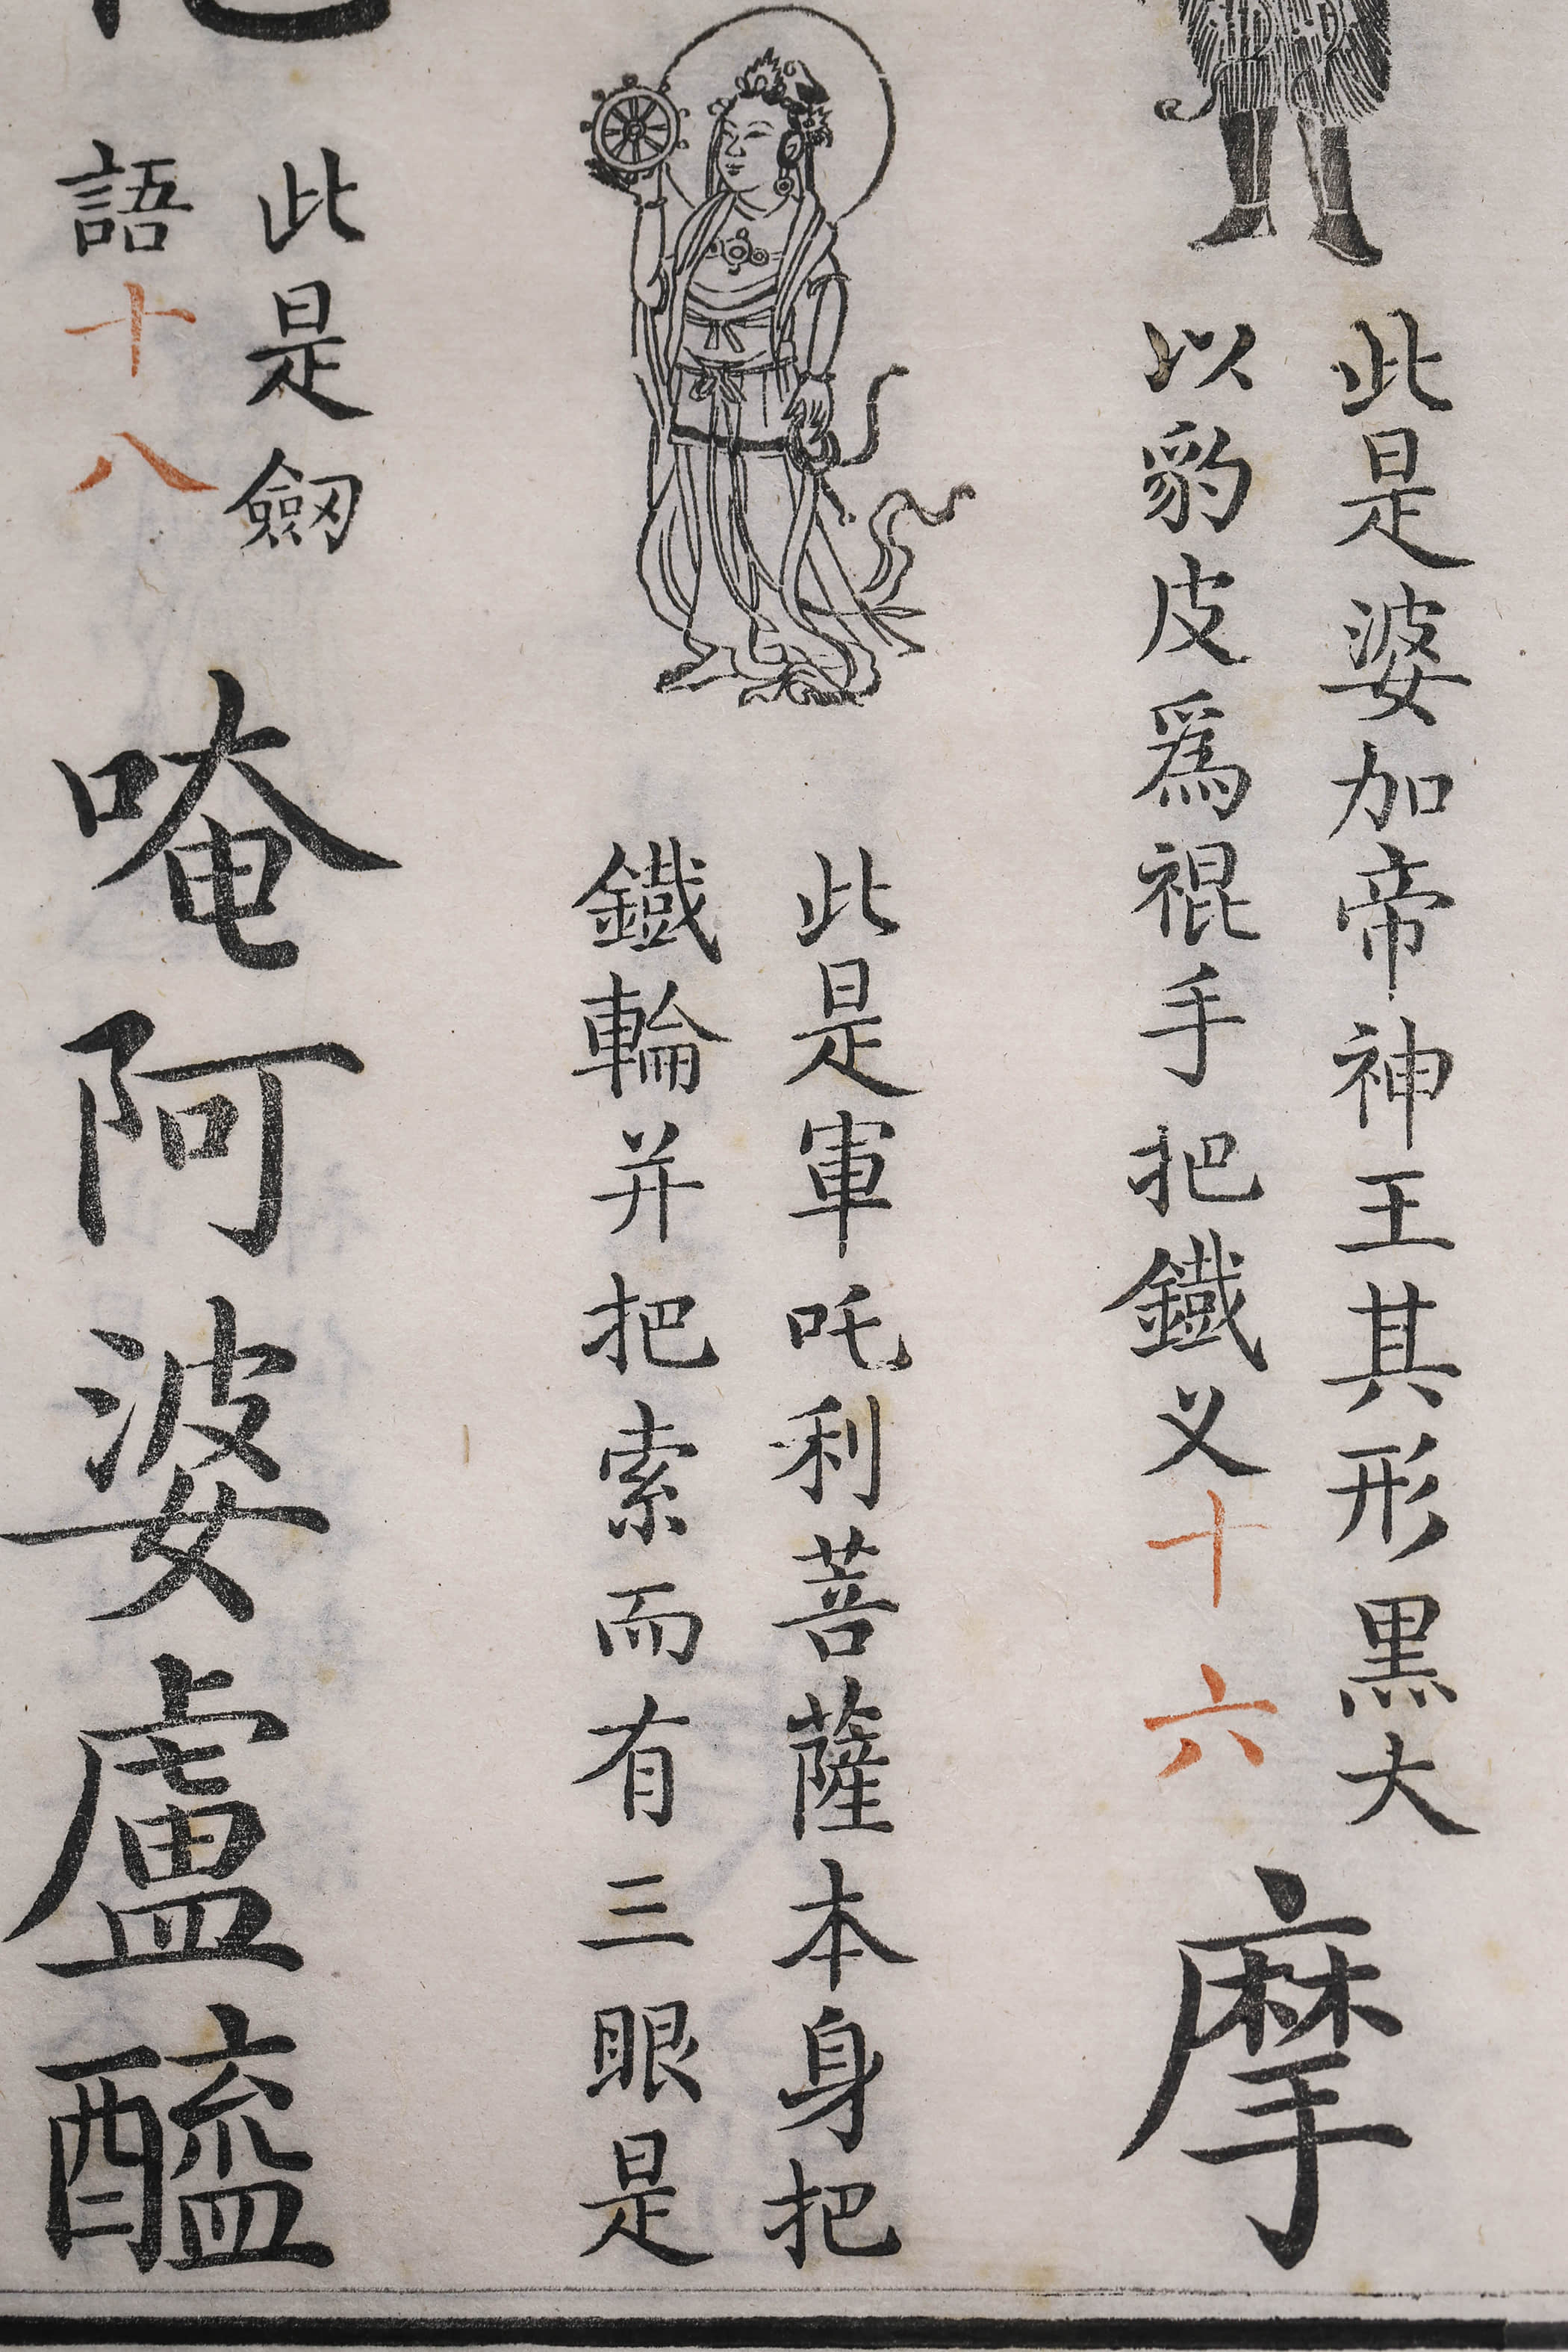 此是婆加帝神王其形黑大
以豹皮爲裩手把鐵义十六
摩
此是軍吒利菩薩本身把
鐵輪并把索而有三眼是
此是劒
語十八
唵阿婆盧醯